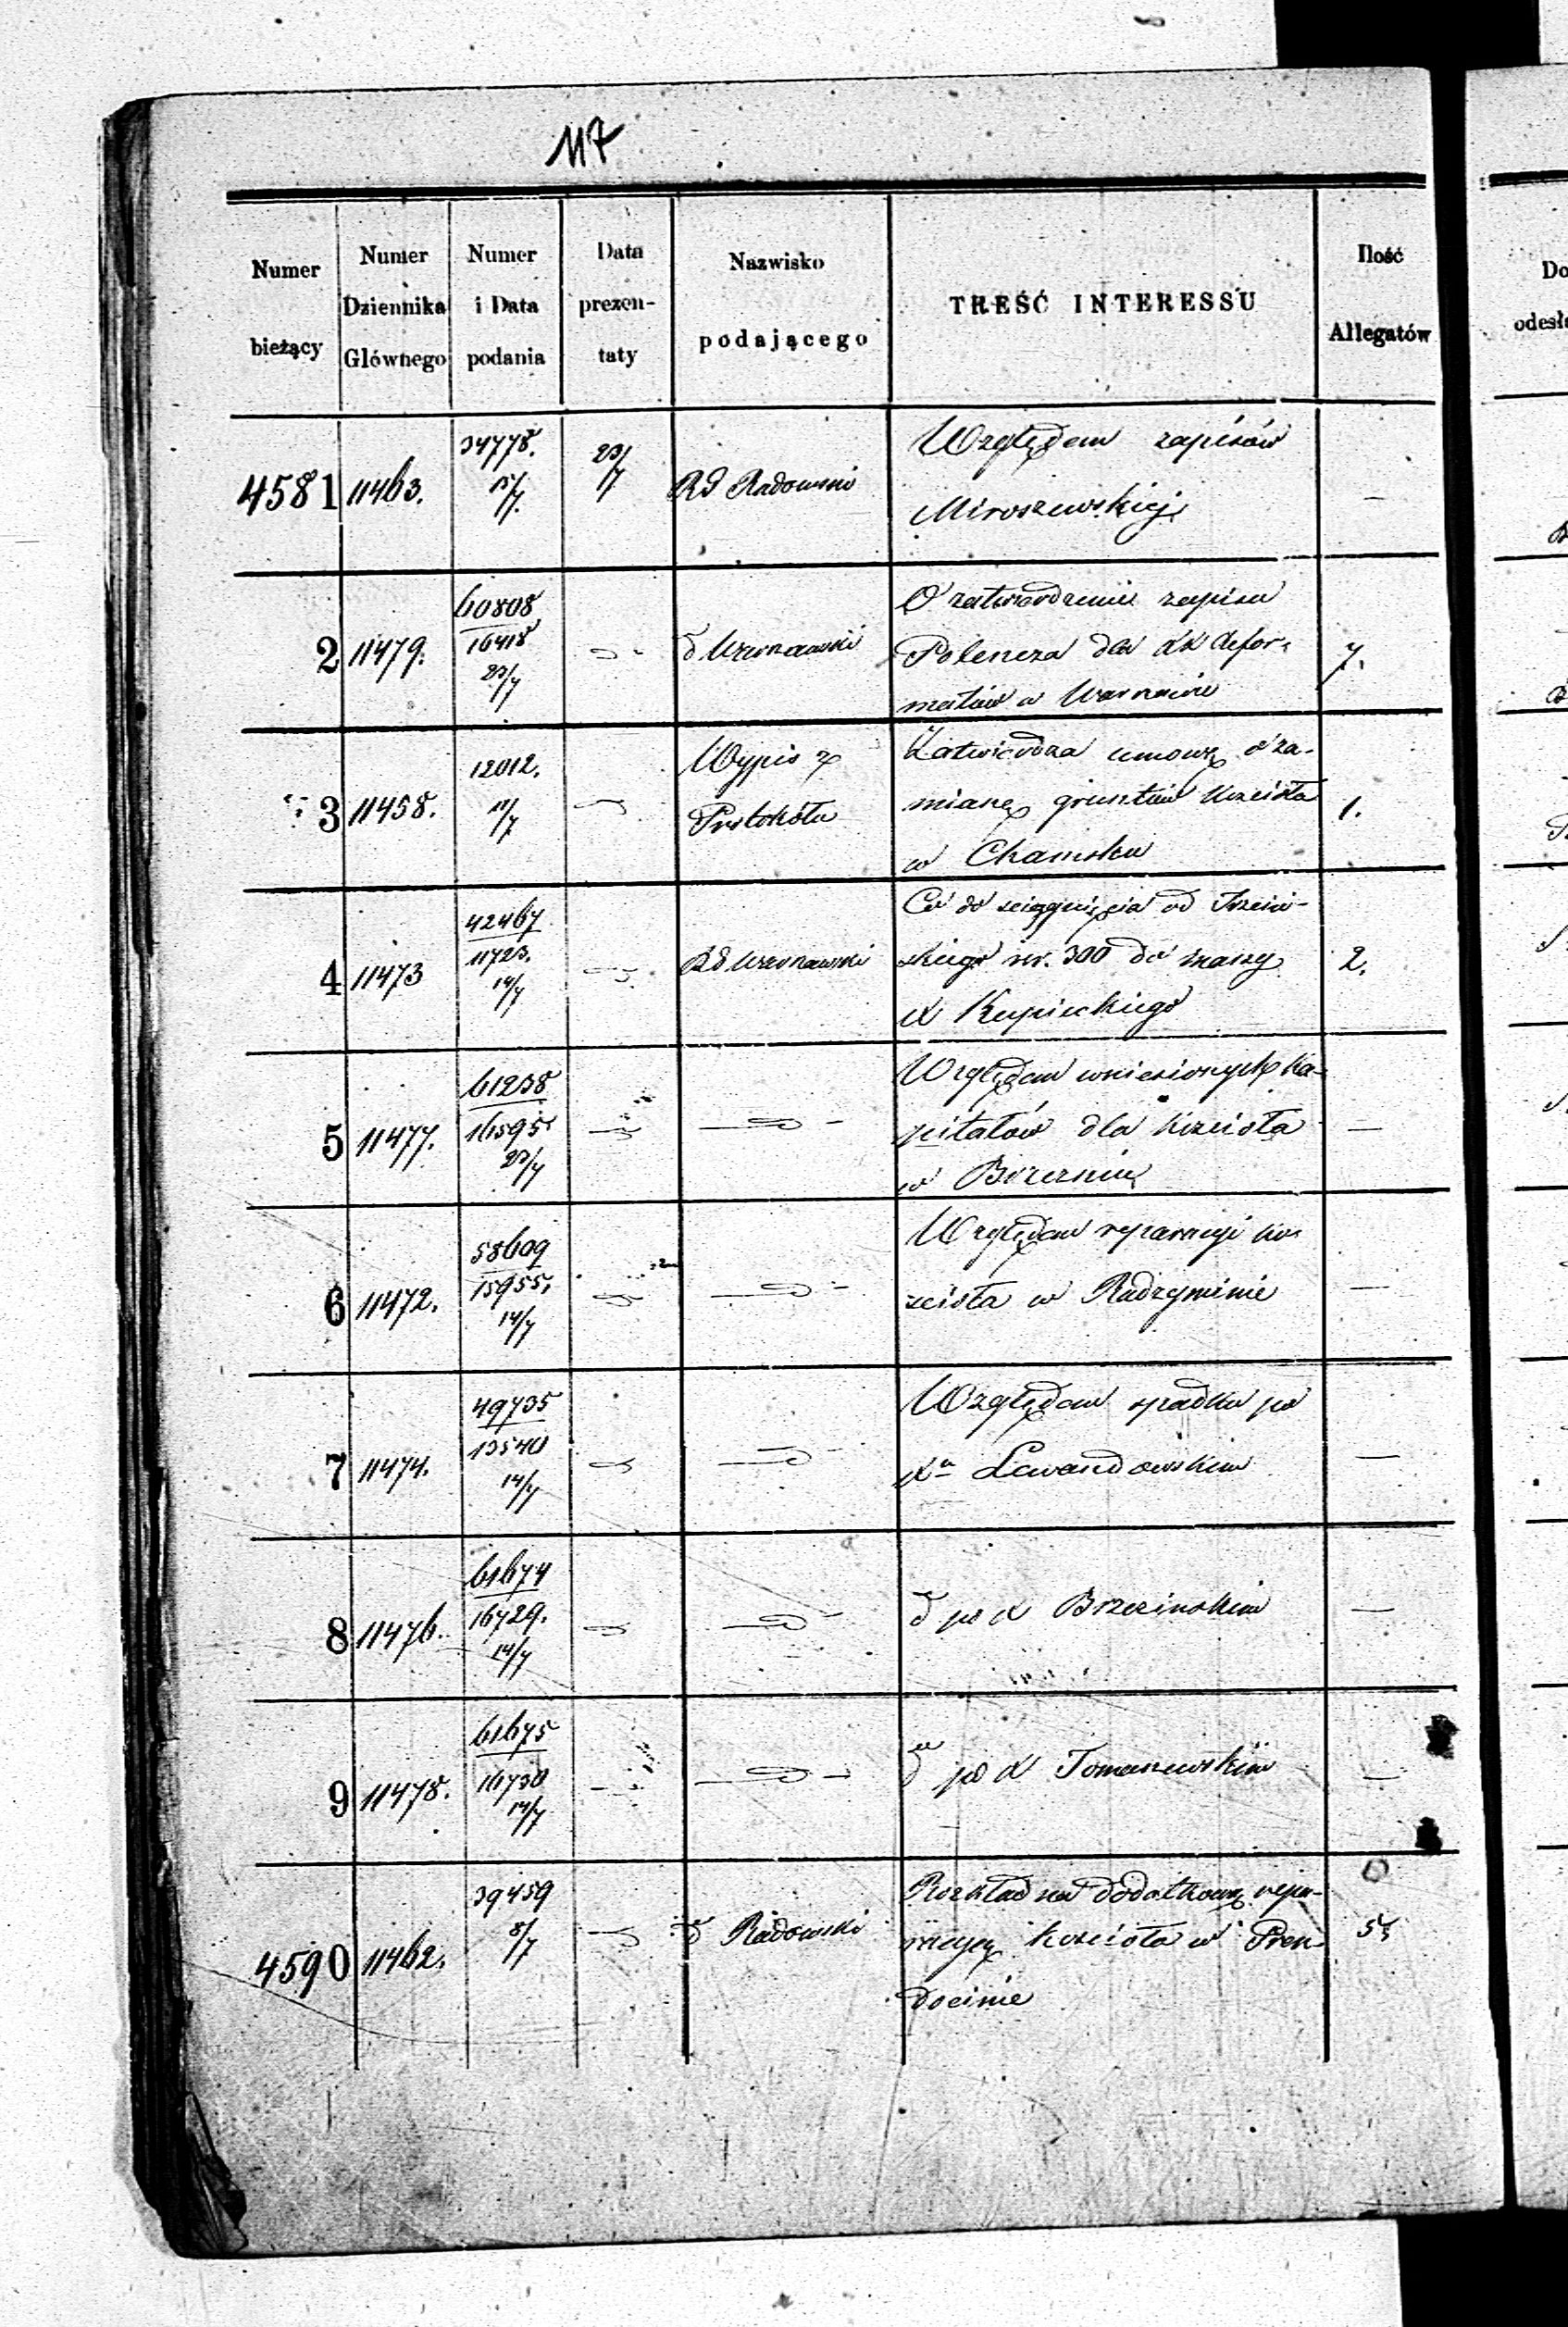 117
Numer bieżący
Numer Dziennika Głównego
Numer i Data podania
Data prezentaty
Nazwisko podającego
TREŚĆ INTERESSU
Ilość Allegatów
4581 11463. 34778. 15/7 23/7 RG Radomski Względem zapisów
Miroszewskiej —
2 11479. 60808
16418
23/7
O zatwierdzenie zapisu
dla XX Refor-
matów w Warszawie 7.
3 11458. 12012.
11/7
Wypis z
Protokółu
Zatwierdza umowę o za-
mianę gruntów Kościoła
w 1.
4 11473 42467
11723.
14/7
RG Warszawski
Co do ściągnięcia od
skiego rs. 300 do massy
X Kupieckiego 2.
5 11477. 61238
16595
23/7
Względem wniesionych ka-
pitałów dla Kościoła
w —
6 11472. 58609
15955.
14/7
Względem reparacyi ko-
ścioła w Radzyminie —
7 11474. 49735
13540
14/7
Względem spadku po
Xu Lewandowskim —
8 11476. 61674
16729.
14/7
po X Brzezińskim —
9 11478. 61675
16730
14/7
po X Tomaszewskim —
4590 11462. 39459
8/7
Radomski
Rozkład na dodatkową repa-
racyę kościoła w Pran-
docinie 5
Do
odesła